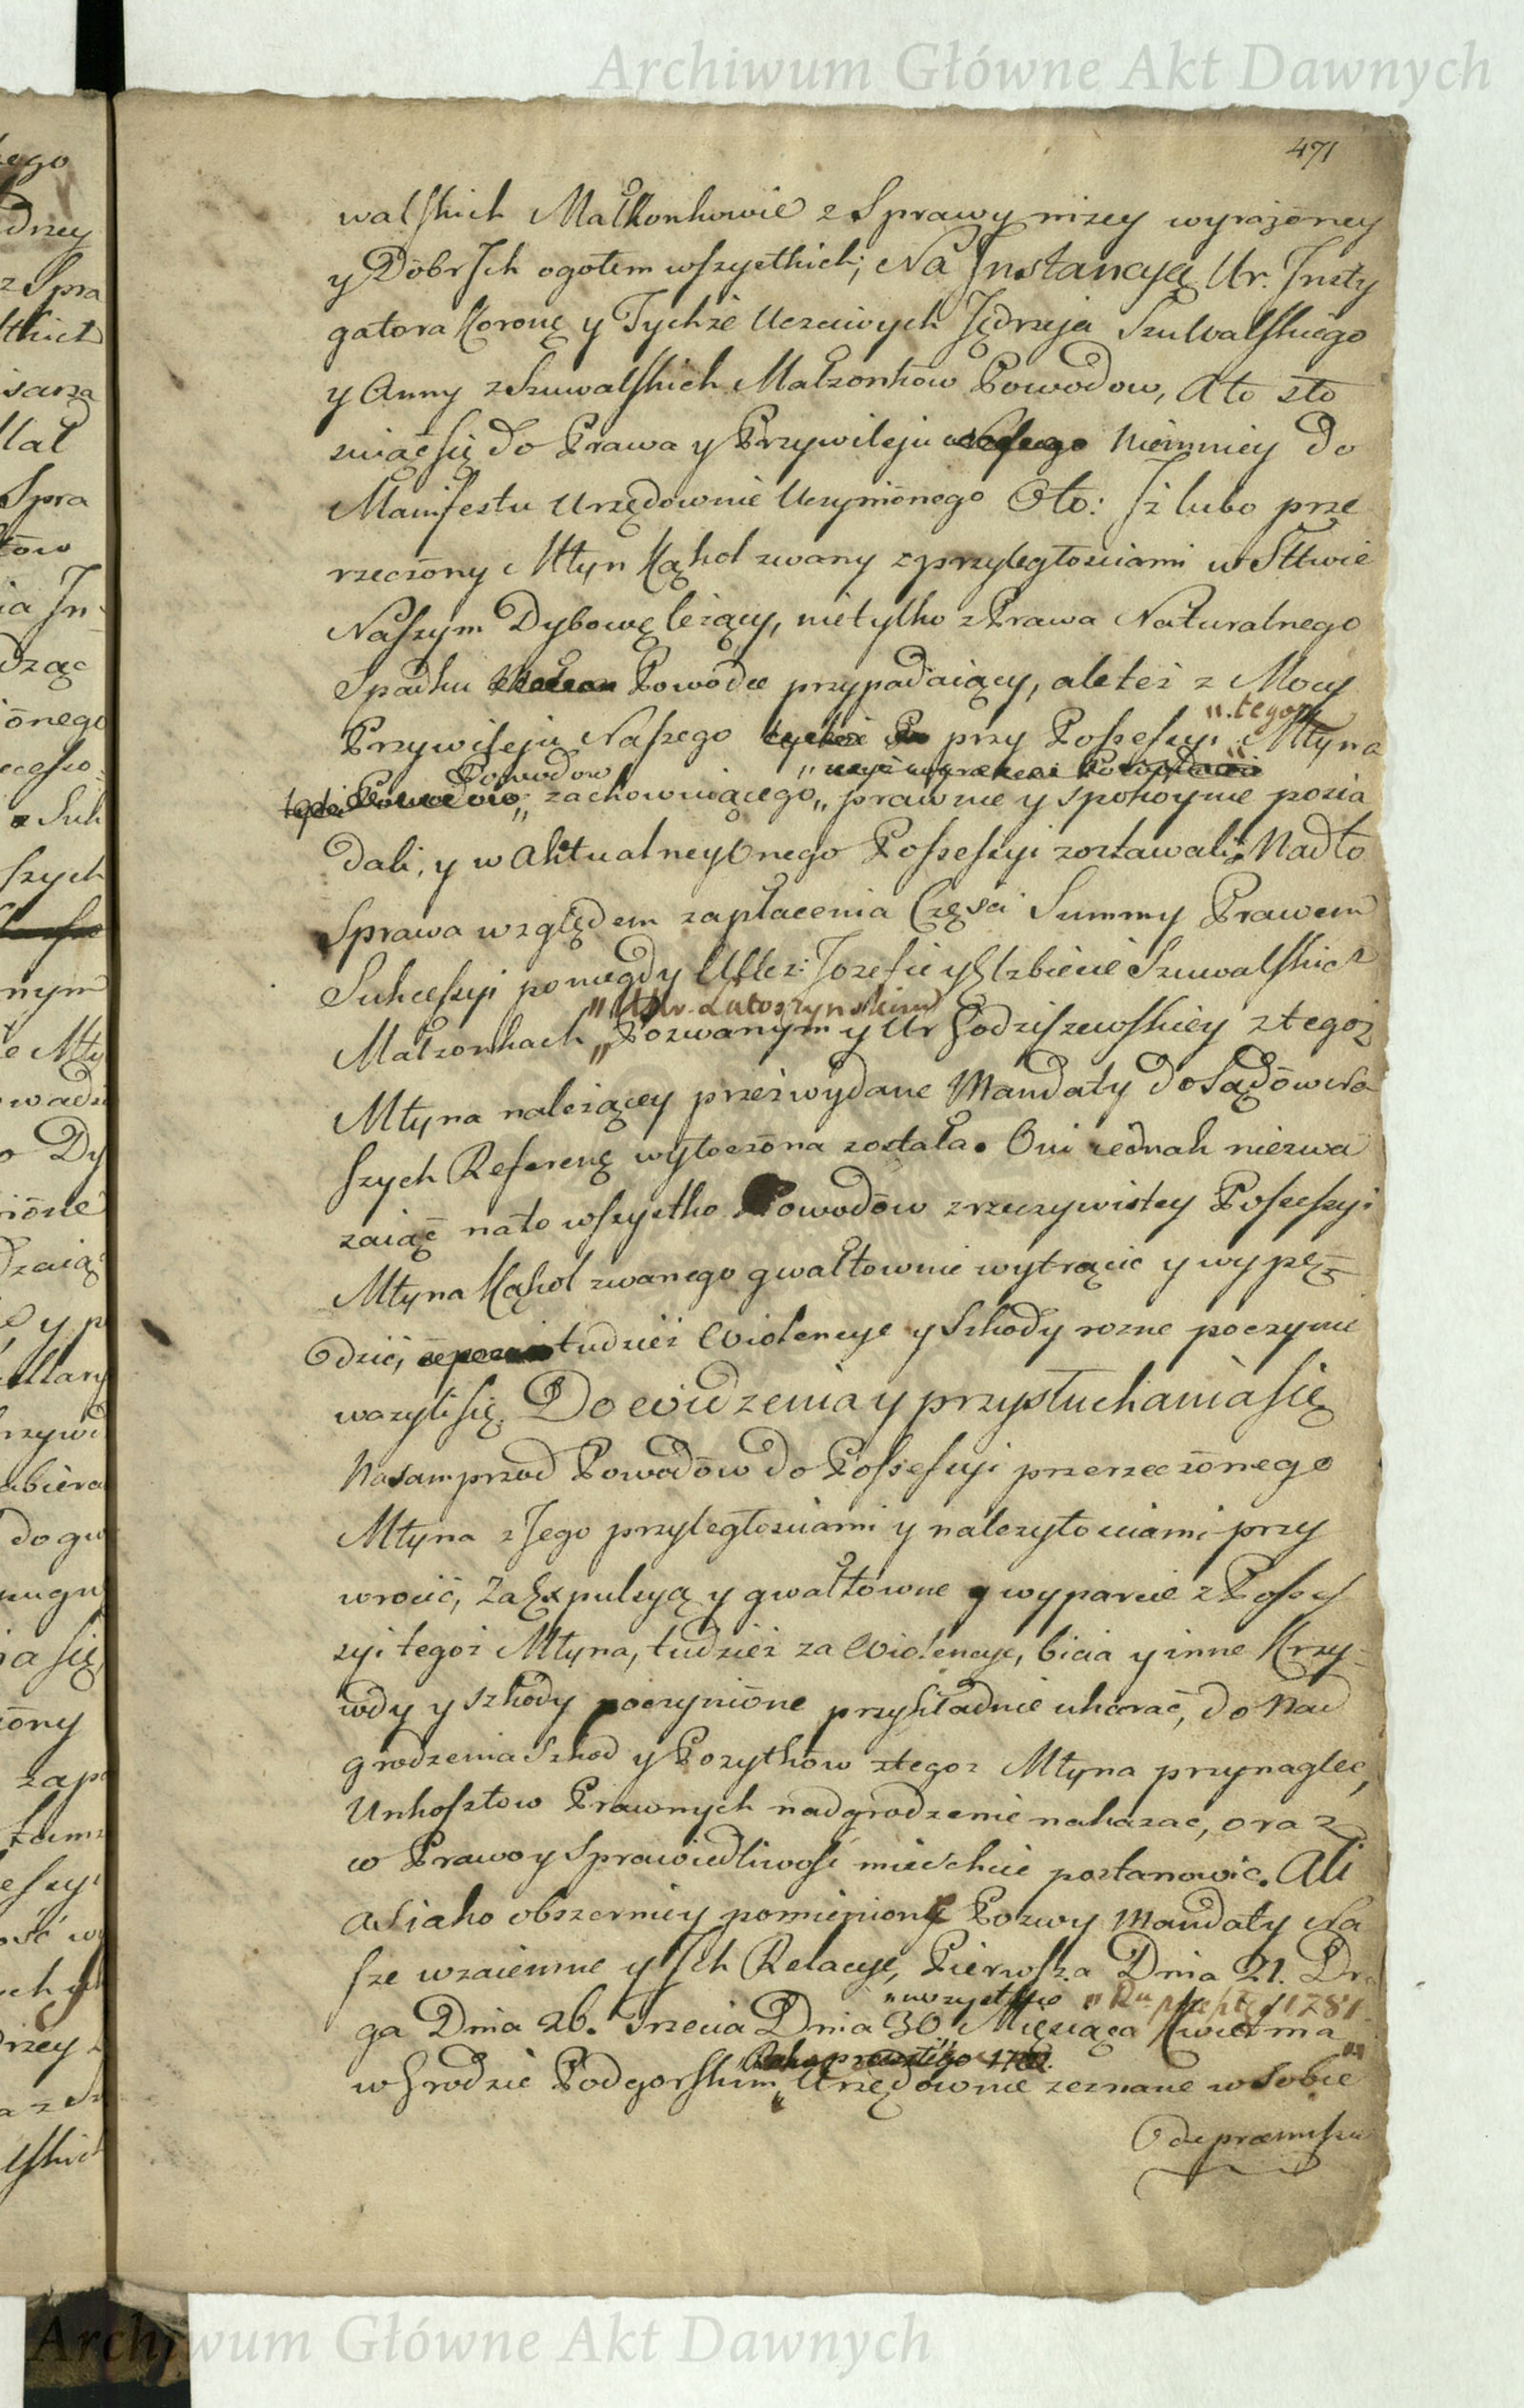 Archiwum Główne Akt Dawnych
471
walskich Małżonkowie z Sprawy niżey wyrażoney
y Dobr Ich ogołem wszystkich; Na Instancyą Ur. Insty
gatora Koronę y Tychże Uczciwych Jędrzeja Szuwalskiego
y Anny z Szuwalskich Małżonkow Powodow, A to sto
suiąc się do Prawa y Przywileju Niemniey do
Manifestu Urzędownie Uczynionego Oto: Iż lubo prze
rzeczony Młyn Kąkol zwany z przyległościami w Sttwie
Naszym Dybowę leżący, nie tylko z Prawa Naturalnego
Spadku Powodce przypadaiący, ale też z Mocy
„tegoż
Przywileju Naszego przy Possessyi Młyna
Powodow
zachowuiącego„ prawnie y spokoynie posia
dali, y w Aktualney Onego Possessyi zostawali. Nadto
Sprawa względem zapłacenia Części Summy Prawem
Sukcessyi pomiędzy Uczci: Jozefie y Elzbiecie Szuwalskich
„Ur. Lutoszynskim
Małżonkach „Pozwanym y Ur Godziszewskiey z tegoż
Młyna należącey przez wydane Mandaty do Sądow Na
szych Referenę wytoczona została. Oni iednak niezwa
żaiąc na to wszystko Powodow z rzeczywistey Possessyi
Młyna Kąkol zwanego gwałtownie wytrącić y wypę-
dzić, tudzież Violencye y Szkody rożne poczynić
ważyli się. Do Widzenia y przysłuchania się
Nasamprzod Powodow do Possessyi przerzeczonego
Młyna z Jego przyległościami y należytościami przy
wrocić, Za Expulsyą y gwałtowne wyparcie z Posses
syi tegoż Młyna, tudzież za Violencye, bicia y inne Krzy-
wdy y szkody poczynione przykładnie ukarać, do Nad
grodzenia Szkod y Pożytkow z tegoż Młyna przynaglec,
Unkosztow Prawnych nadgrodzenie nakazac, oraz
w Prawo y Sprawiedliwość mieyskie postanowic. Ali
as iako obszerniey pomienione Pozwy Mandaty Na
sze wzaiemne y Ich Relacye, Pierwsza Dnia 21. Dru
„wszystkie „Ru 1781
ga Dnia 26. Trzecia Dnia 30 Miesiąca Kwietnia„
w Grodzie Podgorskim „Urzędownie zeznane w sobie
de præmissis
Archiwum Główne Akt Dawnych